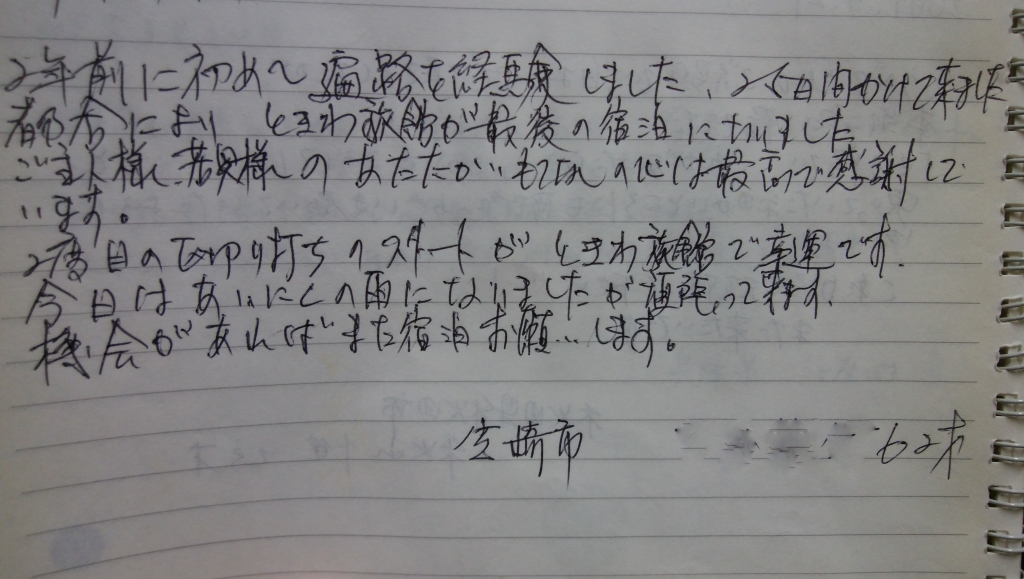 2年前に初めて遍路を経験しました、25日間かけて来ました
都合により ときわ旅館が最後の宿泊になりました
ご主人様、若奥様のあたたかいもてなしの心は最高で感謝して
います。
2度目の区切り打ちのスタートがときわ旅館で幸運です.
今日はあいにくの雨になりましたが 頑張って来ます.
機会があればまた宿泊お願いします。
宮崎市 62才